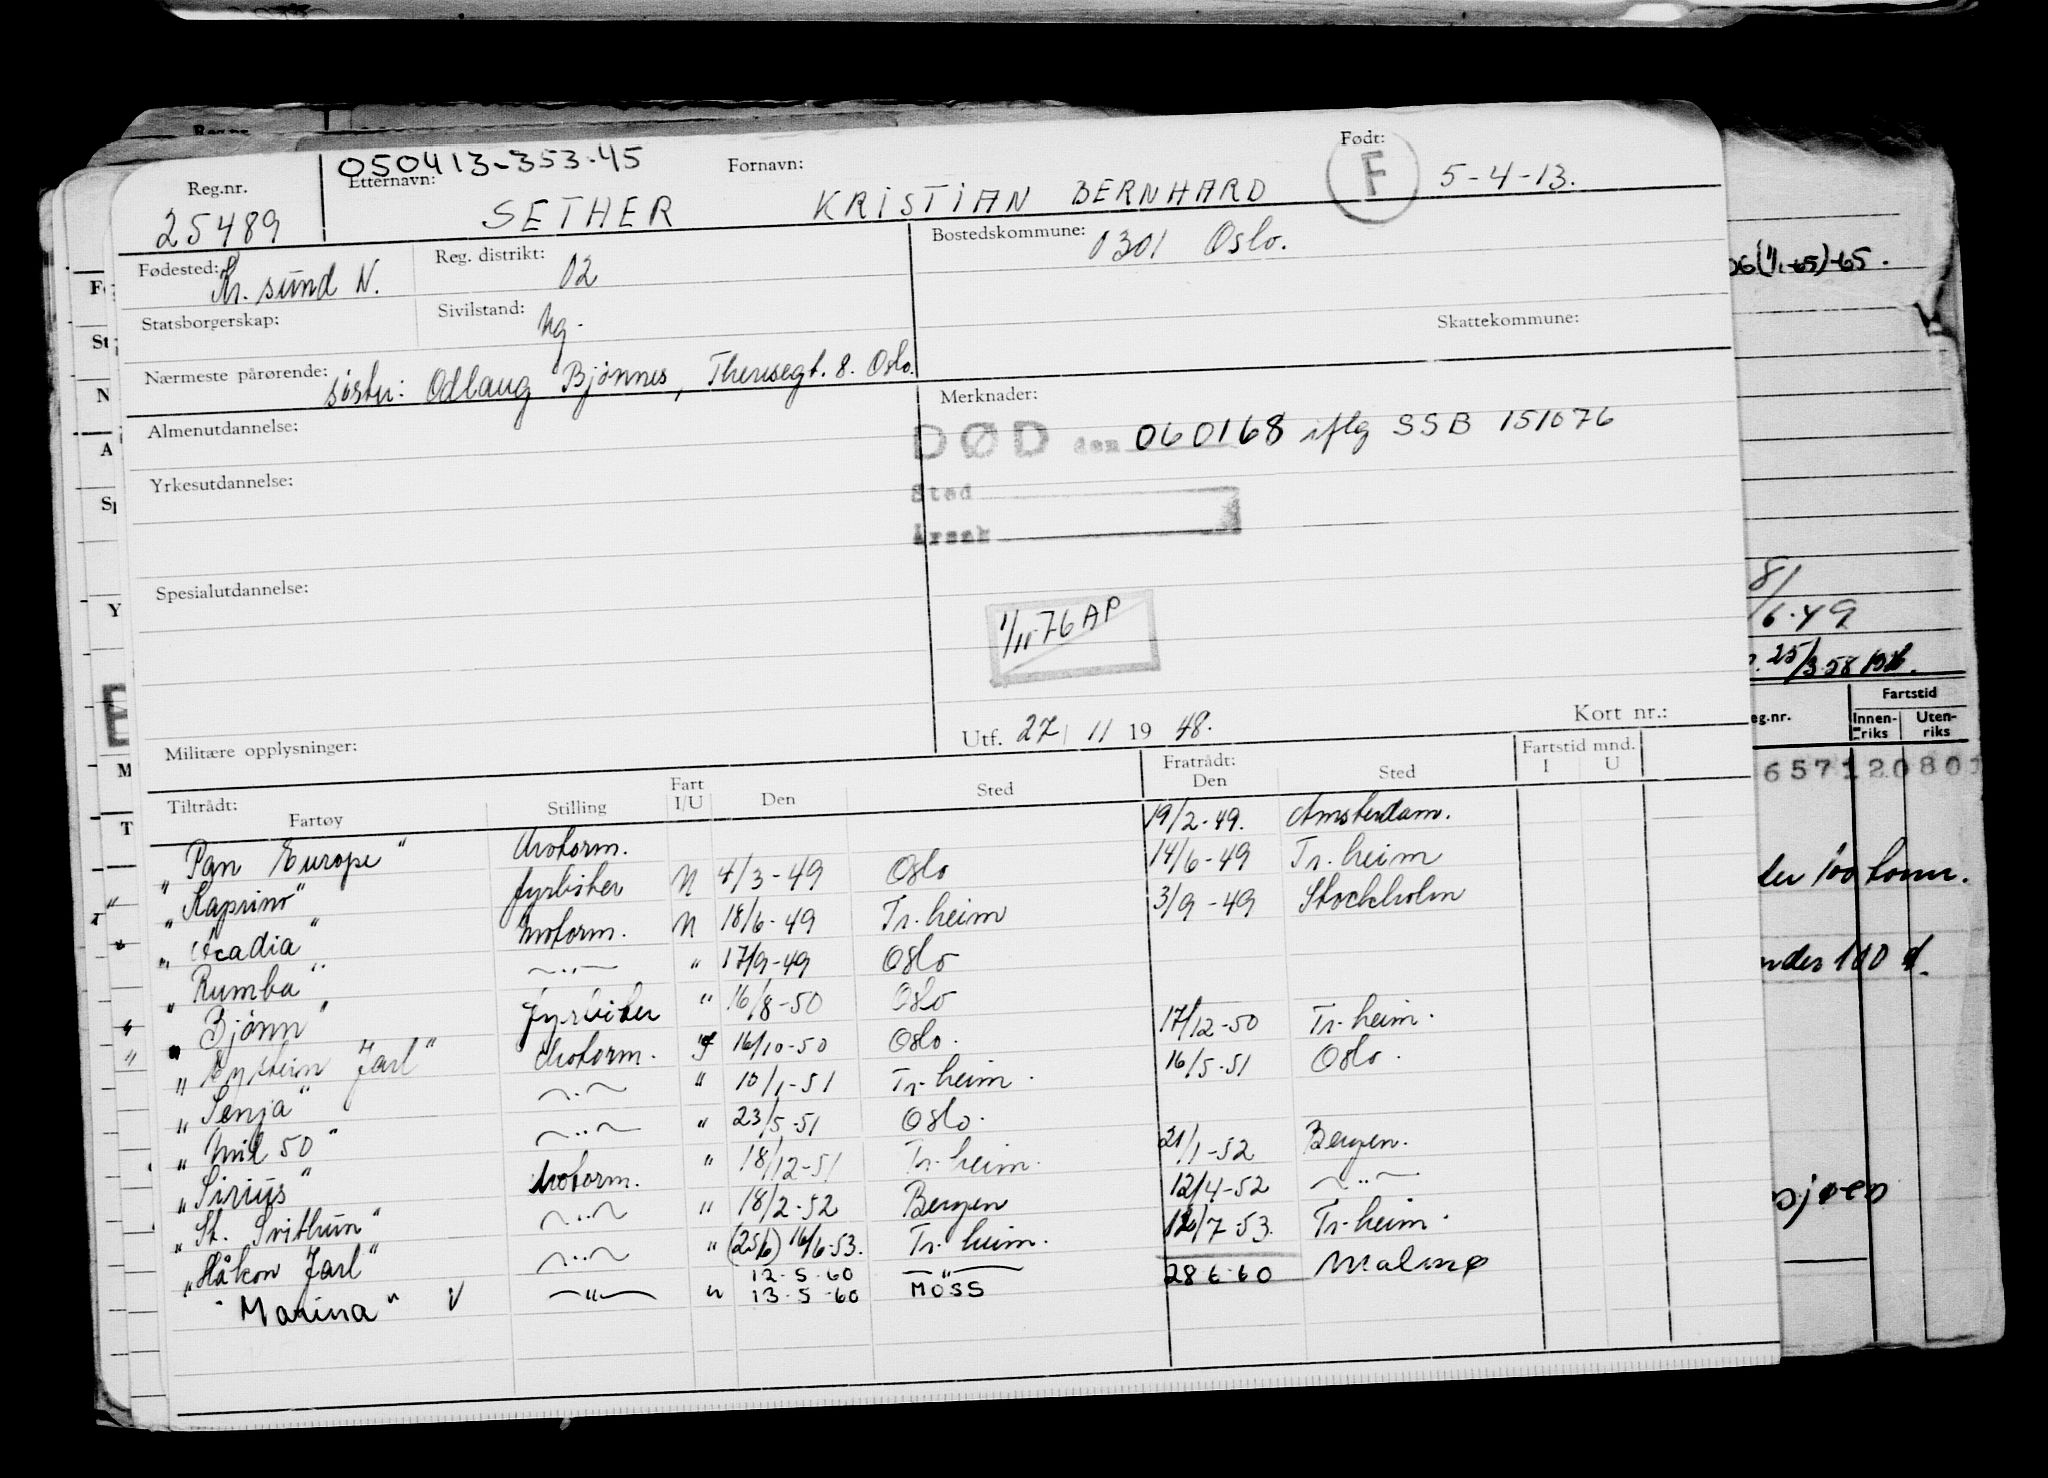 050413-353.45
Reg.nr. Etternavn: Fornavn: Født:
25489 SETHER KRISTIAN BERNHARD F 5-4-13.
Fødested: Kr. sund N. Reg. distrikt: 02 Bostedskommune: 0301 Oslo.
Statsborgerskap: Sivilstand: ug. Skattekommune:
Nærmeste pårørende: søster: Odlaug Bjönnes, Theresegt. 8. Oslo.
Almenutdannelse: Merknader:
DØD den 060168 iflg SSB 151076
Yrkesutdannelse: Sted
Årsak
Spesialutdannelse:
1/11-76 AP
Militære opplysninger: Utf. 27/11 1948. Kort nr.:
Tiltrådt: Fratrådt: Fartstid mnd.
Fartøy Stilling Fart I/U Den Sted Den Sted I U
"Pan Europe" Motorm. 19/2-49. Amsterdam.
fyrbøter N 4/3-49 Oslo 14/6-49 Tr. heim
"Acadia" Motorm. N 18/6-49 Tr. heim 3/9-49 Stockholm
"Rumba" —"— " 17/9-49 Oslo
"Bjönn" fyrbøter " 16/8-50 Oslo
"Eystein Jarl" Motorm. 16/10-50 Oslo. 17/12-50 Tr. heim.
"Senja" —"— " 10/1-51 Tr. heim. 16/5-51 Oslo.
50" —"— " 23/5-51 Oslo.
"Sirius" Motorm. " 18/12-51 Tr. heim. 21/1-52 Bergen.
"St. Svithun" —"— " 18/2-52 Bergen 12/4-52 —"—
"Håkon Jarl" —"— " 16/6-53. Tr. heim. /7-53. Tr. heim.
12-5-60 —"—
"Marina" V —"— " 13-5-60 MOSS 28 6-60 Malmø
-65)-65.
81
/6-49
25/3-58
Fartstid
eg.nr. Innenriks Utenriks
657120801
der 100 tonn.
nder 100